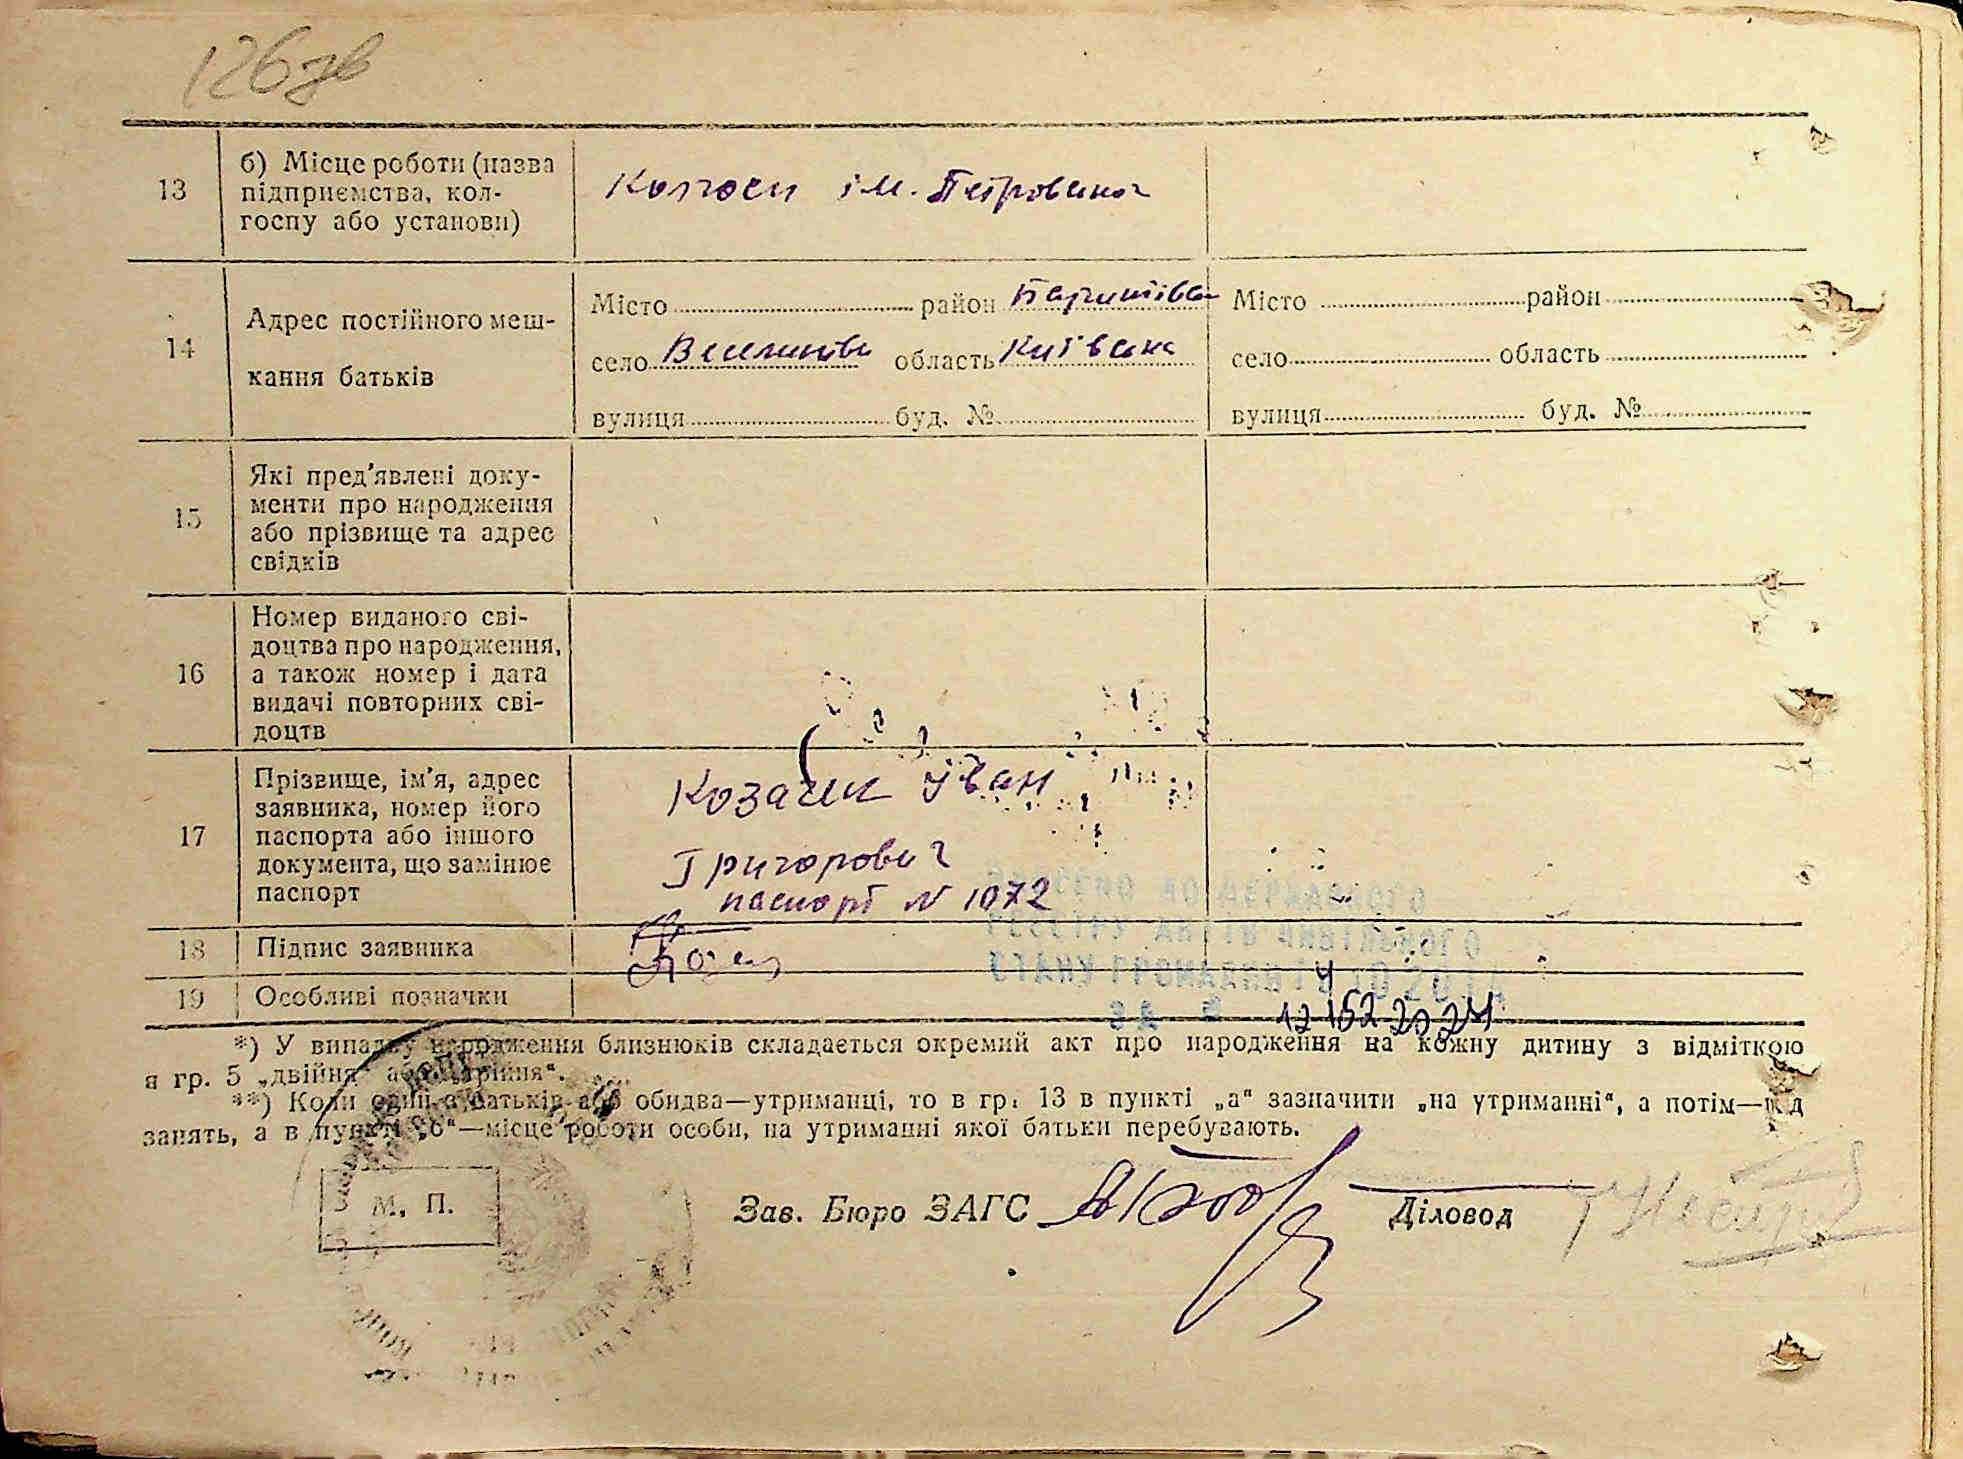 126 зв
13
б) Місце роботи (назва
підприємства, кол-
госпу або установи)
Колгосп ім. Петровська
14
Адрес постійного меш-
кання батьків
Місто район Баришівськ
село Веселинівка область Київська
вулиця буд. №
Місто район
село область
вулиця буд. №
15
Які пред'явлені доку-
менти про народження
або прізвище та адрес
свідків
16
Номер виданого сві-
доцтва про народження,
а також номер і дата
видачі повторних сві-
доцтв
17
Прізвище, ім'я, адрес
заявника, номер його
паспорта або іншого
документа, що замінює
паспорт
Козачек Іван
Григорович
паспорт N 1072
18
Підпис заявника
19
Особливі позначки
ВНЕСЕНО ДО ДЕРЖАВНОГО
РЕЄСТРУ АКТІВ ЦИВІЛЬНОГО
СТАНУ ГРОМАДЯН
ЗА №
*) У випадку народження близнюків складається окремий акт про народження на кожну дитину з відміткою
в гр. 5 „двійня“ або „трійня“.
**) Коли один з батьків або обидва—утриманці, то в гр. 13 в пункті „а“ зазначити „на утриманні“, а потім—під
занять, а в пункті „б“—місце роботи особи, на утриманні якої батьки перебувають.
М. П.
Зав. Бюро ЗАГС
Діловод